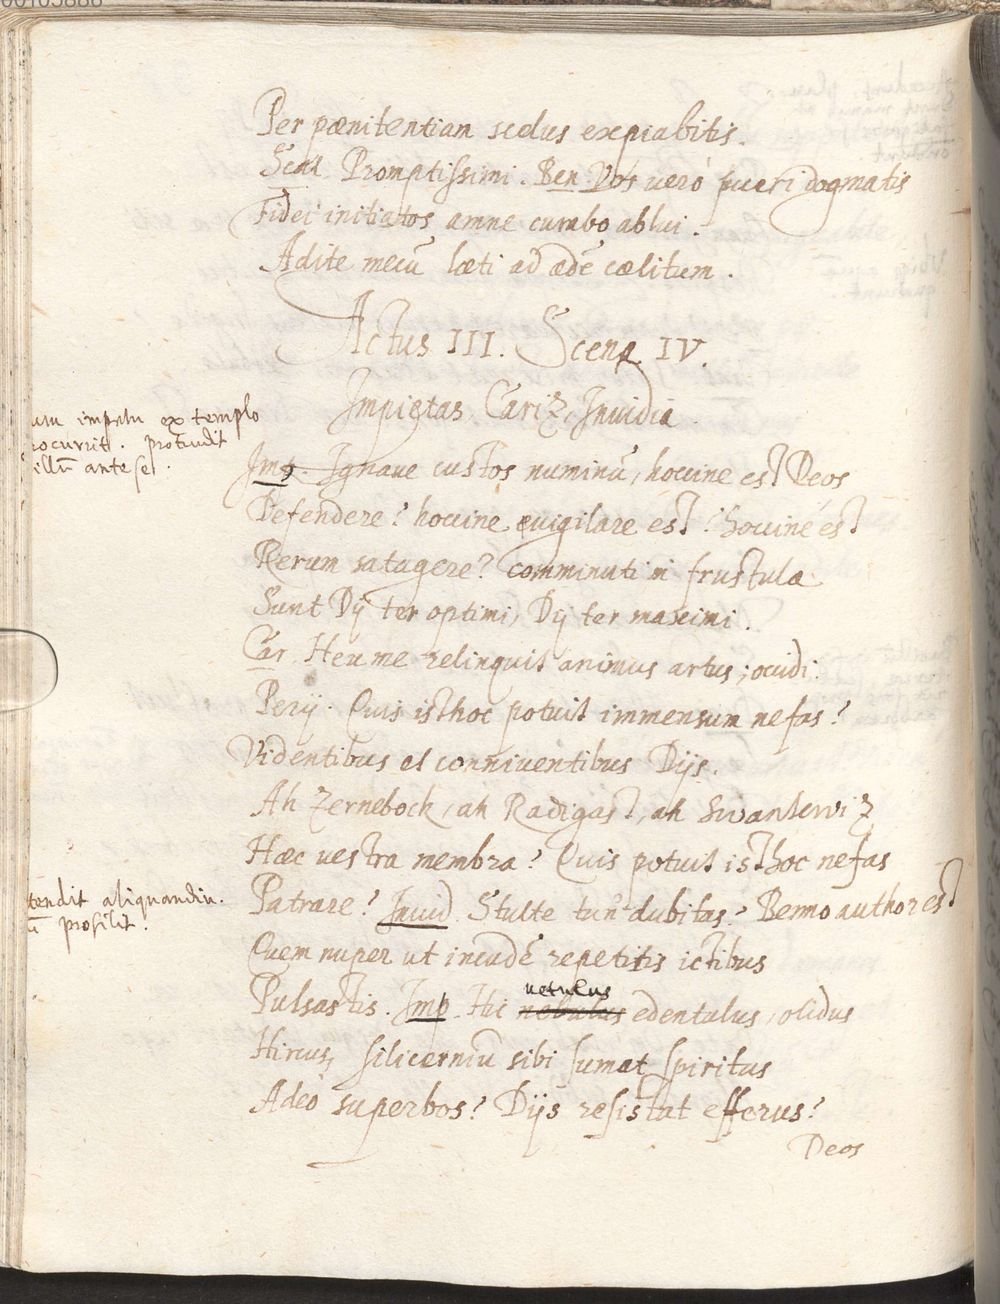 Per pœnitentiam scelus expiabitis.
Scal Promptissimi. Ben Vos verò pueri dogmatis
Fidei initiatos amne curabo ablui.
Adite mecū læti ad ædē cælitum.
Actus III. Scena IV.
Impietas Cariz, Invidia
impetu ex templo
procurrit. protrudit
illū ante se.
Imp. Ignave custos numinū, hoccine est Deos
Defendere? hoccine evigilare est? hoccine est
Rerum satagere? comminuti in frustula
Sunt Dij ter optimi, Dij ter maximi.
Car Heu me relinquit animus artus; occidi.
Perij. Quis isthoc potuit immensum nefas?
Videntibus et conniventibus Dijs.
Ah Zernebock, ah Radigast, ah Swantewiz
Hæc vestra membra? Quis potuit isthoc nefas
tendit aliquandiu.
prosilit.
Patrare? Invid. Stulte tun' dubitas? Benno author est
Quem nuper ut incudē repetitis ictibus
Pulsastis. Imp. Hic vetulus edentulus, olidus
Hircus, silicerniū sibi sumat spiritus
Adeò superbos? Dijs resistat efferus?
Deos